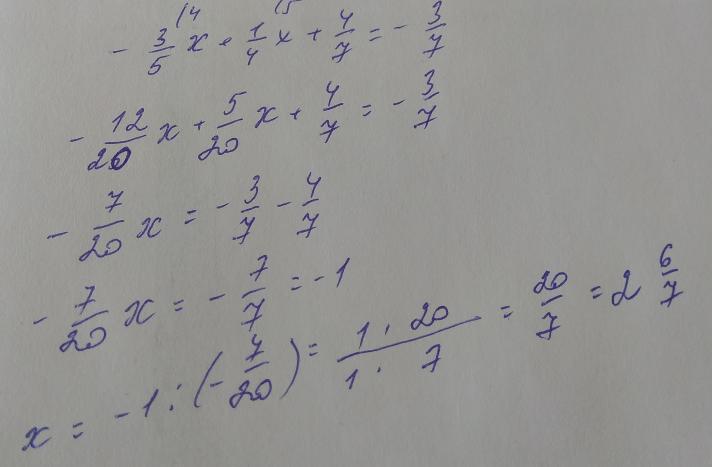 - 3/5 (4 x + 1/4 (5 x + 4/7 = - 3/7
- 12/20 x + 5/20 x + 4/7 = - 3/7
- 7/20 x = - 3/7 - 4/7
- 7/20 x = - 7/7 = -1
x = -1 : (- 7/20) = 1 · 20 / 1 · 7 = 20/7 = 2 6/7